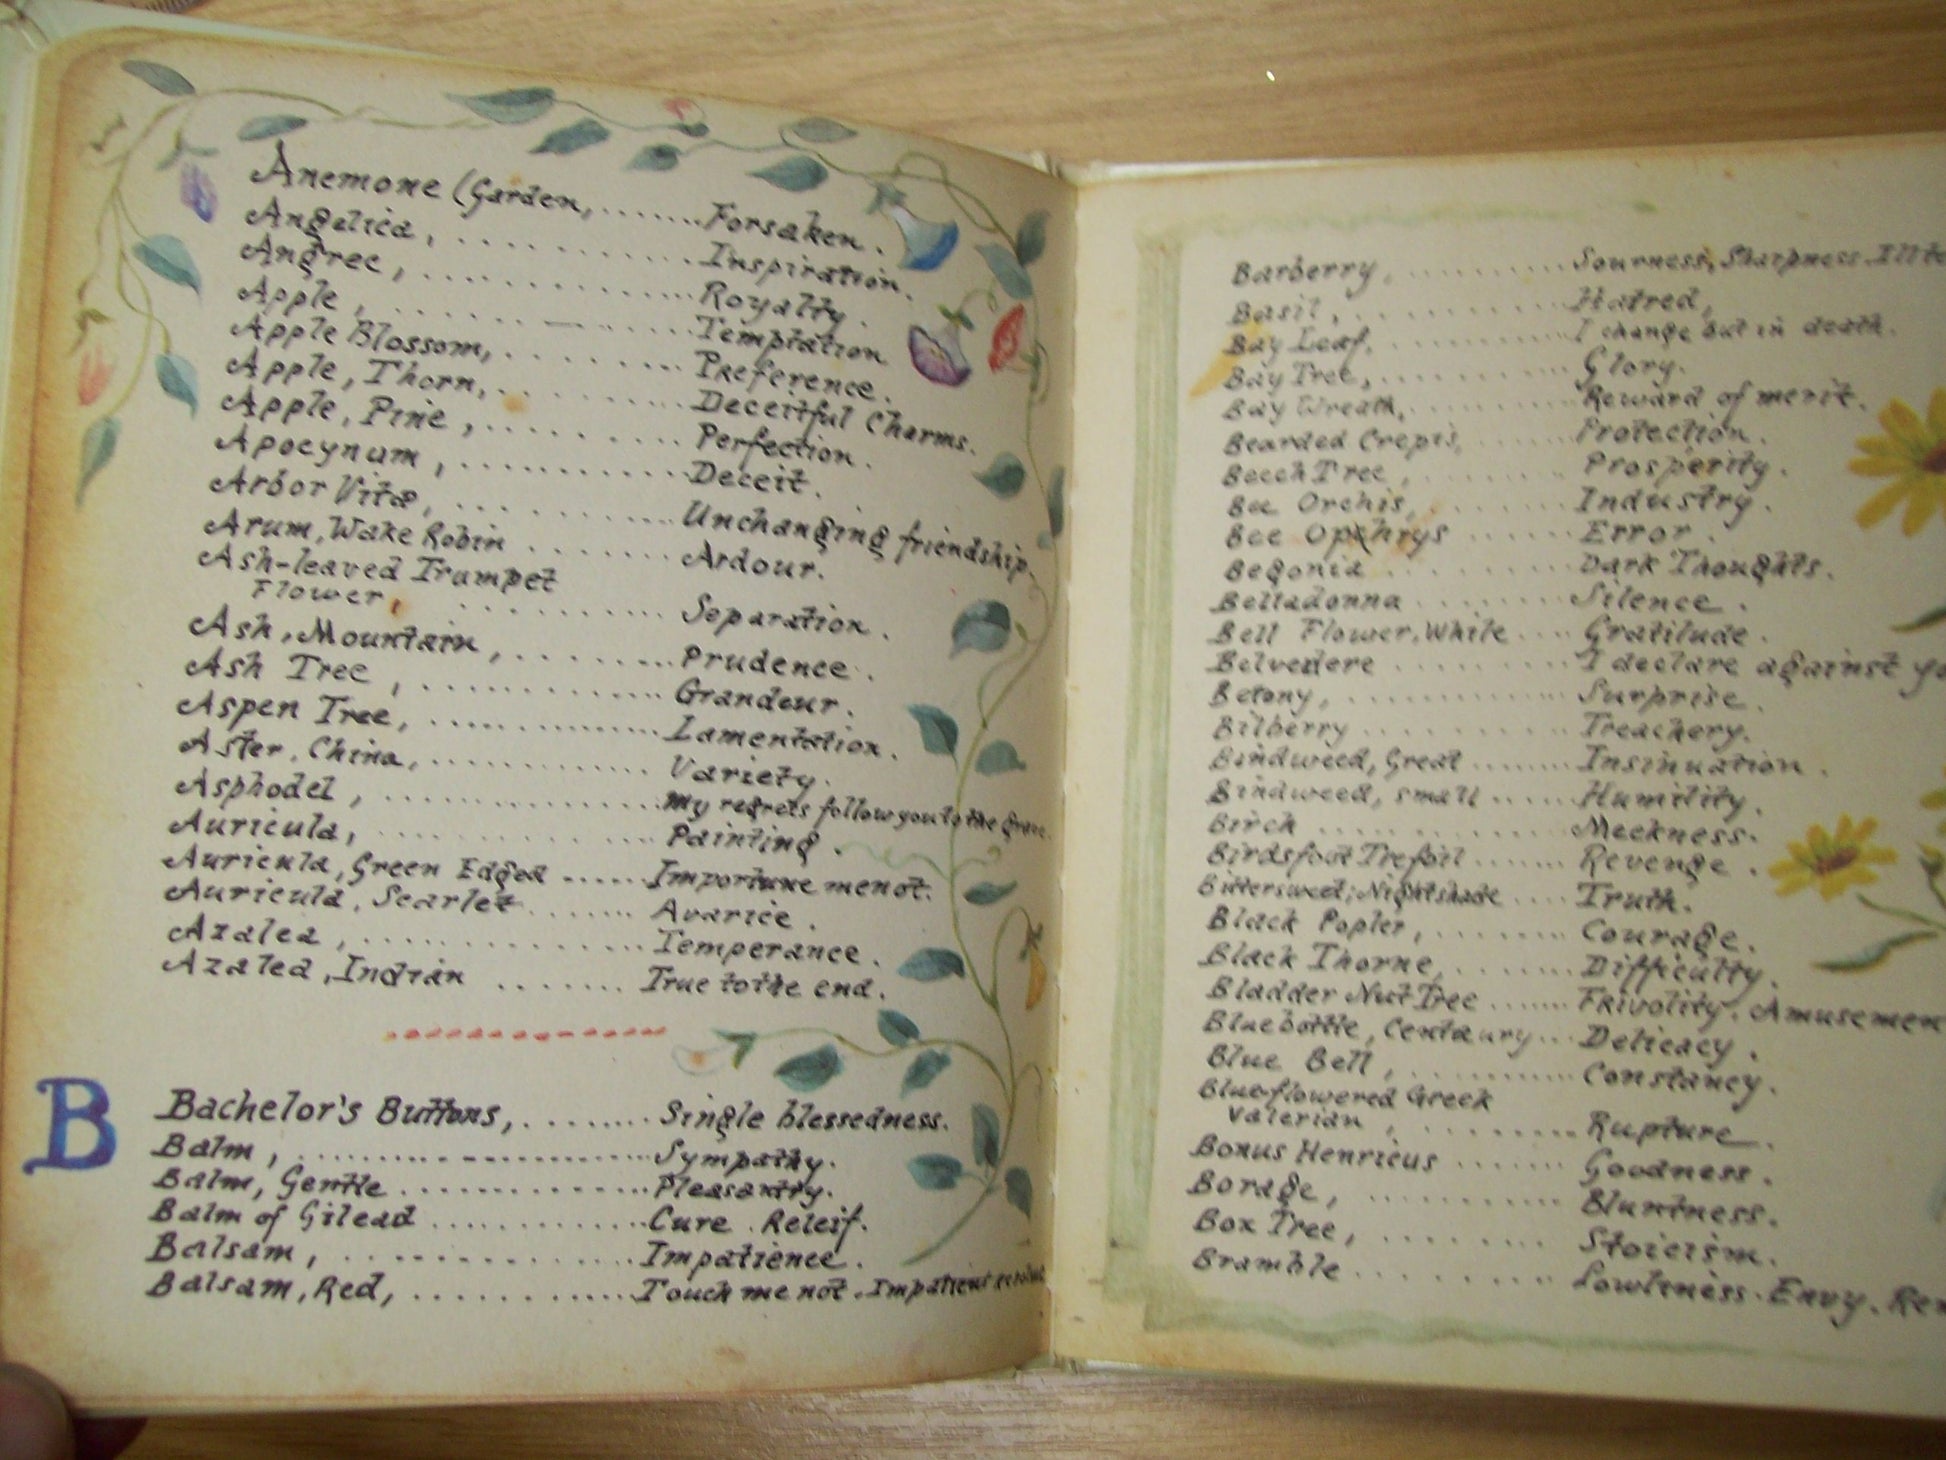 Anemone (Garden, ....... Forsaken.
Angelica, .......... Inspiration.
Angrec, .............. Royalty.
Apple, ............ Temptation
Apple Blossom, ........ Preference.
Apple, Thorn, .......... Deceitful Charms.
Apple, Pine, .......... Perfection.
Apocynum, ............ Deceit.
Arbor Vitæ, .......... Unchanging friendship.
Arum, Wake Robin ....... Ardour.
Ash-leaved Trumpet
Flower, .......... Separation.
Ash, Mountain, ......... Prudence.
Ash Tree, .............. Grandeur.
Aspen Tree, .............. Lamentation.
Aster, China, ............ Variety.
Asphodel, ............... My regrets follow you to the grave.
Auricula, ............ Painting.
Auricula, Green Edged ...... Importune me not.
Auricula, Scarlet ....... Avarice.
Azalea, .............. Temperance.
Azalea, Indian ....... True to the end.
B
Bachelor's Buttons, ........ Single blessedness.
Balm, .................... Sympathy.
Balm, Gentle .............. Pleasantry.
Balm of Gilead ............. Cure. Releif.
Balsam, ............... Impatience.
Balsam, Red, ............. Touch me not. Impatient
Barberry, .......... Sourness, Sharpness. Ill te
Basil, ............ Hatred,
Bay Leaf, ........... I change but in death.
Bay Tree, .......... Glory.
Bay Wreath, ......... Reward of merit.
Bearded Crepis, ...... Protection.
Beech Tree, ........ Prosperity.
Bee Orchis, ........ Industry.
Bee Ophrys ...... Error.
Begonia .......... Dark Thoughts.
Belladonna ........ Silence.
Bell Flower, White .... Gratitude.
Belvedere ......... I declare against yo
Betony, ............ Surprise.
Bilberry .......... Treachery.
Bindweed, Great ........ Insinuation.
Bindweed, small ...... Humility.
Birch ............ Meekness.
Birdsfoot Trefoil ....... Revenge.
Bittersweet; Nightshade .... Truth.
Black Popler, ........ Courage.
Black Thorne, ....... Difficulty.
Bladder Nut Tree ....... FRivolity. Amusemen
Bluebottle, Centaury ... Delicacy.
Blue Bell, ........... Constancy.
Blue-flowered Greek
Valerian, ......... Rupture.
Bonus Henricus ....... Goodness.
Borage, .......... Bluntness.
Box Tree, ........ Stoicism.
Bramble ......... Lowliness. Envy. Rem